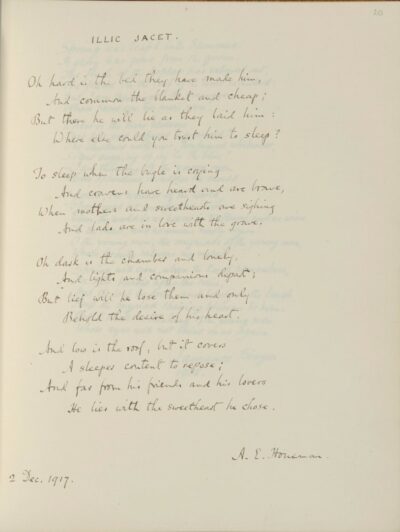 20
ILLIC JACET.
Oh hard is the bed they have made him,
And common the blanket and cheap;
But there he will lie as they laid him:
Where else could you trust him to sleep?
To sleep when the bugle is crying
And cravens have heard and are brave,
When mothers and sweethearts are sighing
And lads are in love with the grave.
Oh dark is the chamber and lonely,
And lights and companions depart;
But lief will he lose them and only
Behold the desire of his heart.
And low is the roof, but it covers
A sleeper content to repose;
And far from his friends and his lovers
He lies with the sweetheart he chose.
A. E. Housman.
2 Dec. 1917.